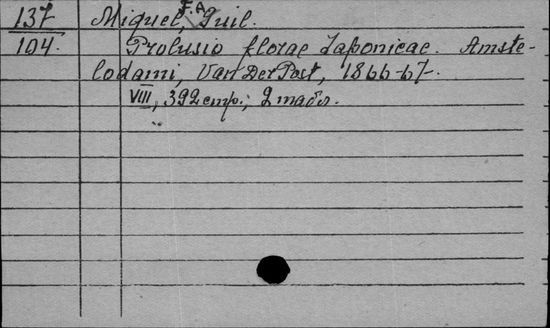 137 Miquel, F.A. Guil.
104. Prolusio florae Japonicae. Amste-
lodami, Van Der Post, 1866-67.
VIII, 392 стр.; 2 табл.